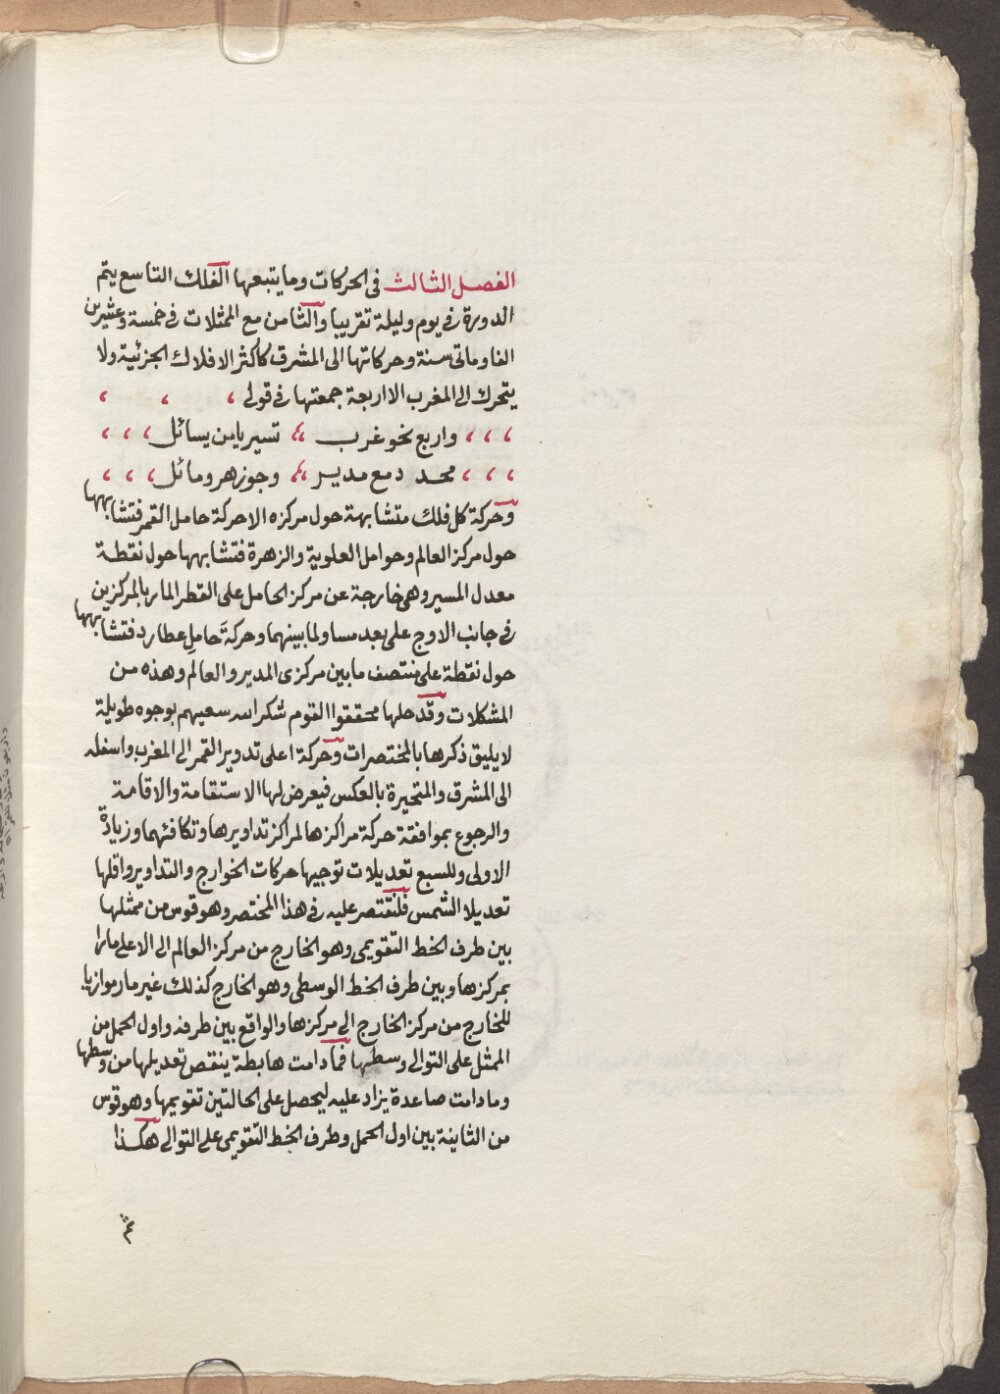 الفصل الثالث في الحركات وما يتبعها الفلك التاسع يتم
الدورة في يوم وليلة تقريبا والثامن مع الممثلات في خمسة وعشرين
الفا وماتى سنة وحركاتها الى المشرق كاكثر الافلاك الجزئية ولا
يتحرك الى المغرب الا اربعة جمعتها في قولى
واربع نحو غرب تسير يا من يسائل
محدد مع مدير وجوزهر ومائل
وحركة كل فلك متشابهة حول مركزه الا حركة حامل القمر فتشابهها
حول مركز العالم وحوامل العلوية والزهرة فتشابهها حول نقطة
معدل المسير وهي خارجة عن مركز الحامل على القطر المار بالمركزين
في جانب الاوج على بعد مساو لما بينهما وحركة حامل عطارد فتشابهها
حول نقطة على منتصف ما بين مركزى المدير والعالم وهذه من
المشكلات وقد حلها محققوا القوم شكر الله سعيهم بوجوه طويلة
لا يليق ذكرها بالمختصرات وحركة اعلى تدوير القمر الى المغرب واسفله
الى المشرق والمتحيرة بالعكس فيعرض لها الاستقامة والاقامة
والرجوع بموافقة حركة مراكزها لمراكز تداويرها وتكافئهما وزيادة
الاولى وللسبع تعديلات توجبها حركات الخوارج والتداوير واقلها
تعديلا الشمس فلنقتصر عليه في هذا المختصر وهو قوس من ممثلها
بين طرف الخط التقويمى وهو الخارج من مركز العالم الى الاعلى مارا
بمركزها وبين طرف الخط الوسطى وهو الخارج كذلك غير مار موازيا
للخارج من مركز الخارج الى مركزها والواقع بين طرفه واول الحمل من
الممثل على التوالى وسطها فما دامت هابطة ينقص تعديلها من وسطها
وما دامت صاعدة يزاد عليه ليحصل على الحالتين تقويمها وهو قوس
من الثانية بين اول الحمل وطرف الخط التقويمى على التوالى هكذا